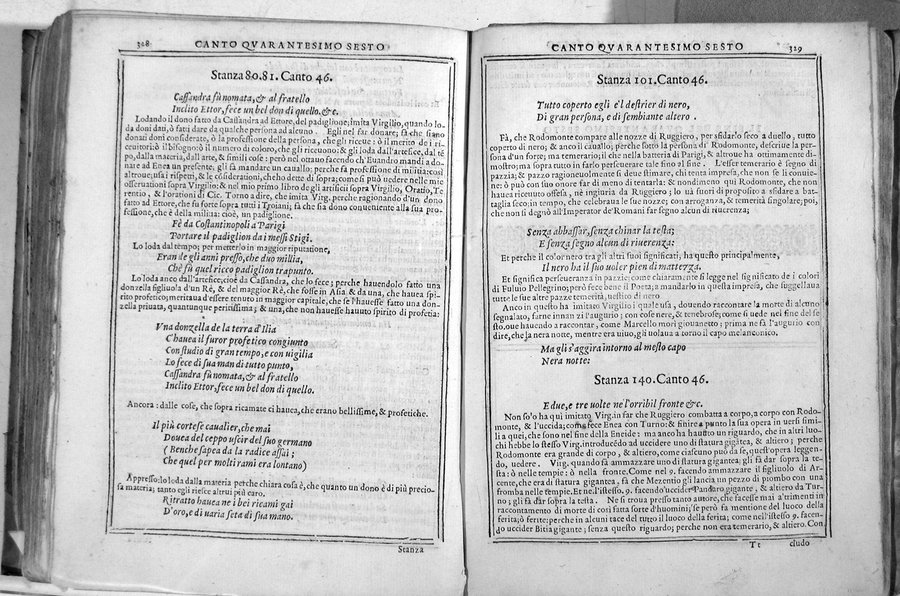 328 CANTO QVARANTESIMO SESTO
Stanza 80.81. Canto 46.
Cassandra fù nomata, & al fratello
Inclito Ettor, fece un bel don di quello. &c.
Lodando il dono fatto da Cassandra ad Ettore, del padiglione; imita Virgilio, quando lo-
da doni dati, ò fatti dare da qualche persona ad alcuno. Egli nel far donare; fà che siano
donati doni considerate, ò la professione della persona, che gli riceue: ò il merito de i ri-
ceuitori ò il bisogno: ò il numero di coloro, che gli riceuono: & gli loda dall'artefice, dal té
po, dalla materia, dall'arte, & simili cose: però nel ottauo facendo ch'Euandro mandi a do-
nare ad Enea un presente, gli fà mandare un cauallo; perche fà professione di militia: così
altroue; usa i rispetti, & le considerationi, che ho detto di sopra; come si può uedere nelle mie
osseruationi sopra Virgilio: & nel mio primo libro de gli artificii sopra Virgilio, Oratio, Te
rentio, & l'orationi di Cic. Torno a dire, che imita Virg. perche ragionando d'un dono
fatto ad Ettore, che fu forte sopra tutti i Troiani; fà che sia dono conueniente alla sua pro-
fessione, che è della militia: cioè, un padiglione.
Fè da Costantinopoli a Parigi
Portare il padiglion da i messi Stigi.
Lo loda dal tempo; per metterlo in maggior riputatione,
Eran de gli anni presso, che duo millia,
Chè fù quel ricco padiglion trapunto.
Lo loda anco dall'artefice, cioè da Cassandra, che lo fece; perche hauendolo fatto una
donzella figliuola d'un Rè, & del maggior Rè, che fosse in Asia. & da una, che hauea spi-
rito profetico; meritaua d'essere tenuto in maggior capitale, che se l'hauesse fatto una don-
zella priuata, quantunque peritissima; & una, che non hauesse hauuto spirito di profetia:
Vna donzella de la terra d'Ilia
C'hauea il furor profetico congiunto
Con studio di gran tempo, e con uigilia
Lo fece di sua man di tutto punto,
Cassandra fù nomata, & al fratello
Inclito Ettor, fece un bel don di quello.
Ancora: dalle cose, che sopra ricamate ci hauea, che erano bellissime, & profetiche.
Il più cortese caualier, che mai
Douea del ceppo uscir del suo germano
( Benche sapea da la radice assai;
Che quel per molti rami era lontano)
Appresso: lo loda dalla materia perche chiara cosa è, che quanto un dono è di più precio-
sa materia; tanto egli riesce altrui più caro.
Ritratto hauea ne i bei ricami gai
D'oro, e di uaria seta di sua mano.
Stanza
CANTO QVARANTESIMO SESTO 329
Stanza 101. Canto 46.
Tutto coperto egli e'l destrier di nero,
Di gran persona, e di sembiante altero.
Fà, che Rodomonte compare alle nozze di Ruggiero, per sfidarlo seco a duello, tutto
coperto di nero; & anco il cauallo; perche sotto la persona di Rodomonte, descriue la per-
sona d'un forte; ma temerario; il che nella battaria di Parigi, & altroue ha ottimamente di-
mostro; ma sopra tutto in farlo perseuerare tale fino al fine. L'esser temerario è segno di
pazzia; & pazzo ragioneuolmente si deue stimare, chi tenta impresa, che non se li conuie-
ne: ò può con suo onore far di meno di tentarla: & nondimeno quì Rodomonte, che non
hauea riceuuto offesa, nè ingiuria da Ruggiero; lo uà fuori di proposito a sfidare a bat-
taglia seco: in tempo, che celebraua le sue nozze; con arroganza, & temerità singolare; poi,
che non si degnò all'Imperator de'Romani far segno alcun di riuerenza;
Senza abbassar, senza chinar la testa;
E senza segno alcun di riuerenza;
Et perche il color nero tra gli altri suoi significati, ha questo principalmente,
Il nero ha il suo uoler pien di mattezza.
Et significa perseueranza in pazzia: come chiaramente si legge nel significato de i colori
di Fuluio Pellegrino; però fece bene il Poeta; a mandarlo in questa impresa, che suggellaua
tutte le sue altre pazze temerità, uestito di nero
Anco in questo ha imitato Virgilio: il quale usa, douendo raccontare la morte di alcuno
segnalato, farne innan zi l'augurio; con cose nere, & tenebrose; come si uede nel fine del se-
sto, oue hauendo a raccontar, come Marcello morì giouanetto; prima ne fà l'augurio con
dire, che la nera notte, mentre era uiuo, gli uolaua a torno il capo melanconico.
Ma gli s'aggira intorno al mesto capo
Nera notte:
Stanza 140. Canto 46.
E due, e tre uolte ne l'orribil fronte &c.
Non so'o ha quì imitato Virg. in far che Ruggiero combatta a corpo, a corpo con Rodo-
monte, & l'uccida; come fece Enea con Turno: & finire a punto la sua opera in uersi simi-
li a quei, che sono nel fine della Eneide: ma anco ha hauuto un riguardo, che in altri luo-
chi hebbe lo stesso Virg. introducédo ad uccidere uno di statura gigátea, & altiero; perche
Rodomonte era grande di corpo, & altiero, come ciascuno può da se, quest'opera leggen-
do, uedere. Virg. quando fà ammazzare uno di statura gigantea; gli fà dar sopra la te-
sta: ò nelle tempie: ò nella fronte. Come nel 9. facendo ammazzare il figliuolo di Ar-
cente, che era di statura gigantea, fà che Mezentio gli lancia un pezzo di piombo con una
fromba nelle tempie. Et ne l'istesso, 9. facendo uccider Pandaro gigante, & altiero da Tur-
no; gli fà dar sopra la testa. Ne si troua presso tanto autore, che facesse mai altrimenti in
raccontamento di morte di così fatta sorte d'huomini; se però fà mentione del luoco della
ferita; ò ferite: perche in alcuni tace del tutto il luoco della ferita; come nell'istesso 9. facen-
do uccider Bitia gigante; senza questo riguardo; perche non era temerario, & altiero. Con
Tt cludo